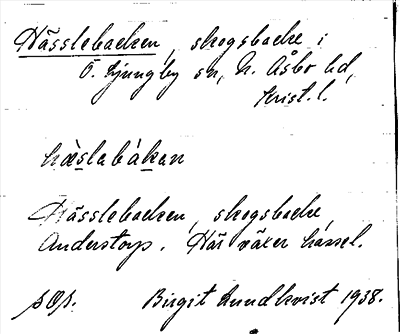 Hässlebacken, skogsbacke i
Ö. Ljungby sn, N. Åsbo hd,
Krist. l.
hæslabákan
Hässlebacken, skogsbacke,
Anderstorp. Här växer hassel.
Birgit Lundkvist 1938.